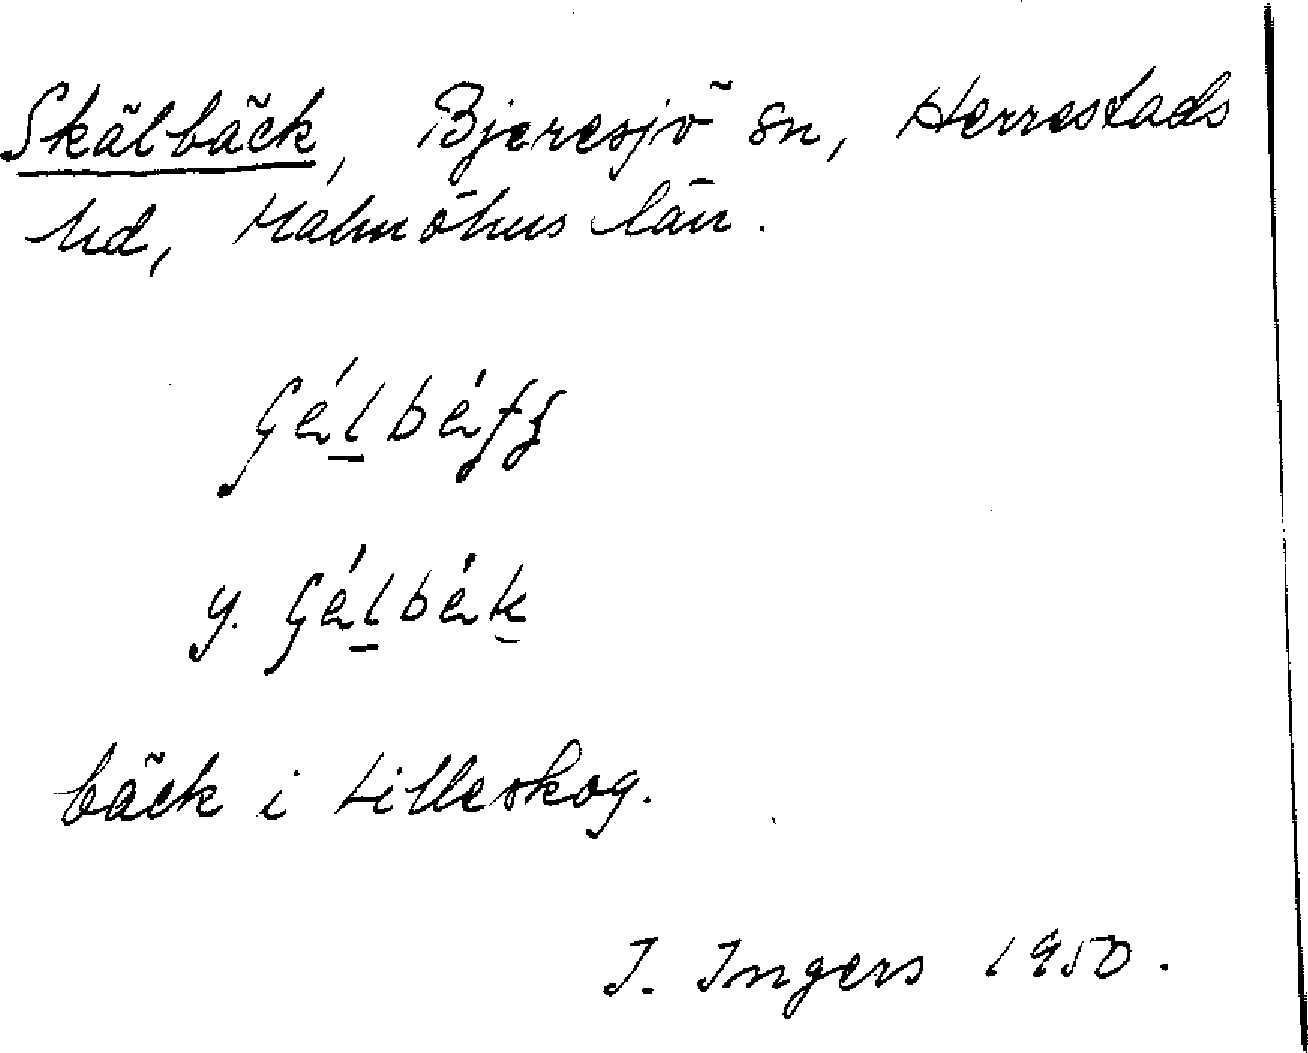 Skälbäck, Bjeresjö sn, Herrestads
hd, Malmöhus län.
y.
bäck i Lilleskog.
I. Ingers 1950.